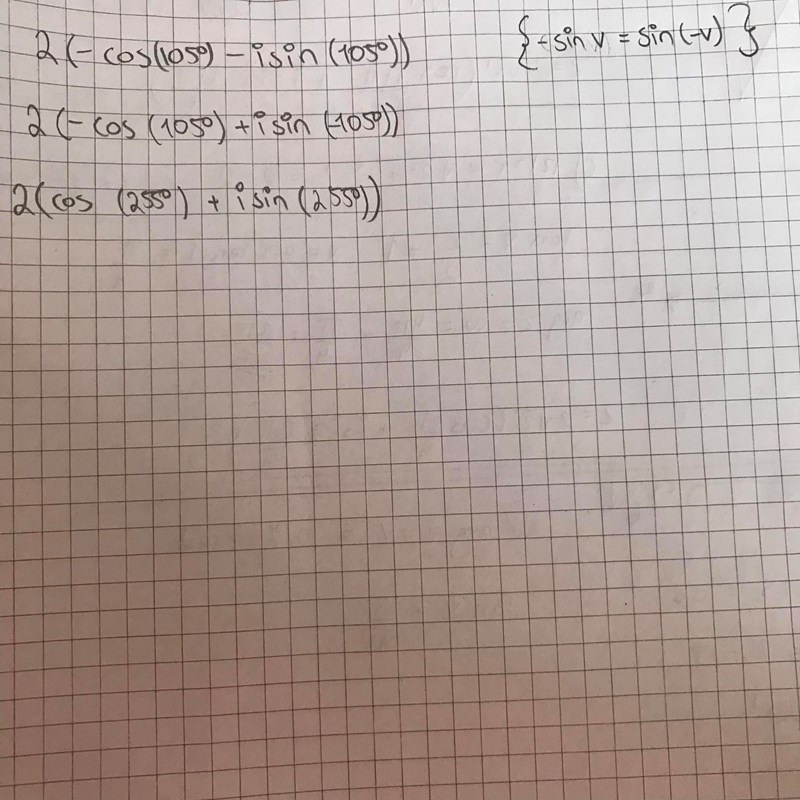 2(-cos(105°) - i sin (105°)) {-sin v = sin(-v)}
2(-cos (105°) + i sin (-105°))
2(cos (255°) + i sin (255°))